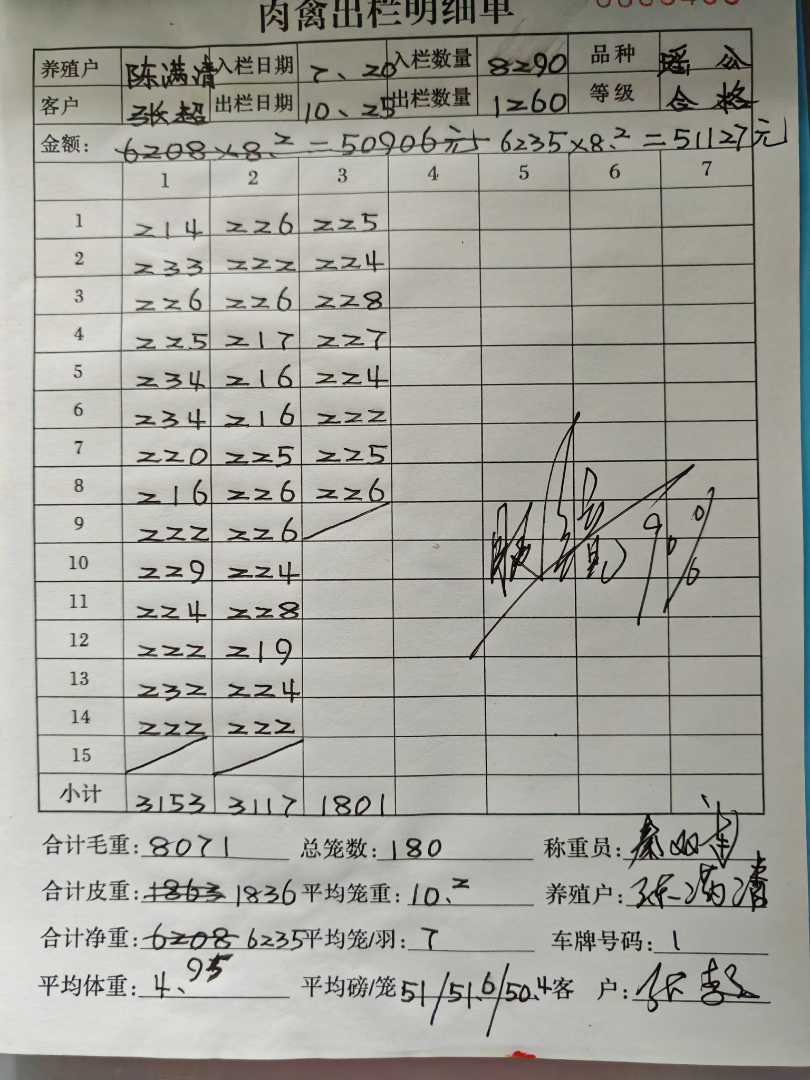 肉禽出栏明细单
养殖户 陈满清 入栏日期 7、20 入栏数量 8290 品种 瑶公
客户 张超 出栏日期 10、25 出栏数量 1260 等级 合格
金额: 6208×8.2=50906元 6235×8.2=51127元
1 2 3 4 5 6 7
1 214 226 225
2 233 222 224
3 226 226 228
4 225 217 227
5 234 216 224
6 234 216 222
7 220 225 225
8 216 226 226
9 222 226
10 229 224
11 224 228
12 222 219
13 232 224
14 222 222
15
小计 3153 3117 1801
合计毛重: 8071 总笼数: 180 称重员:
合计皮重: 1863 1836 平均笼重: 10.2 养殖户: 陈满清
合计净重: 6208 6235 平均笼/羽: 7 车牌号码: 1
平均体重: 4.95 平均磅/笼 51/51.6/50.4 客户: 张超